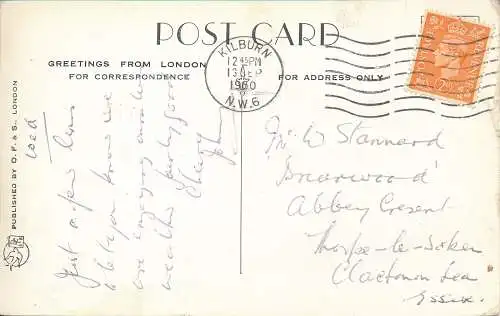 POST CARD
GREETINGS FROM LONDON
FOR CORRESPONDENCE
FOR ADDRESS ONLY
KILBURN
12 45 PM
13 SEP
1950
N.W.6
PUBLISHED BY D. F. & S., LONDON
Wed
Just a few lines
to let you know we
are enjoying ourselves
weather fairly good
Cheerio
Mr W Stannard
Briarwood
Abbey Cresent
Thorpe-le-Soken
Clacton on Sea
Essex